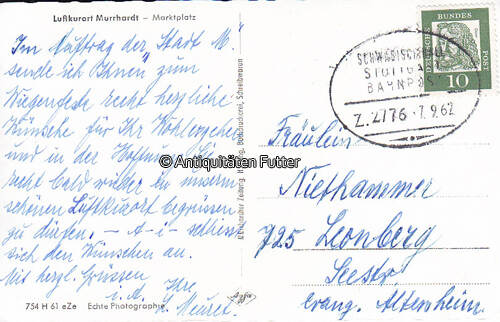 Luftkurort Murrhardt – Marktplatz
Im Auftrag der Stadt M.
sende ich Ihnen zum
Wiegenfeste recht herzliche
Wünsche für Ihr Wohlergehen
und in der Hoffnung, Sie
recht bald wieder in unserm
schönen Luftkurort begrüssen
zu dürfen. – A – i – schliesst
sich den Wünschen an.
Mit herzl. Grüssen
i. A. Ihre
754 H 61 eZe Echte Photographie
© Antiquitäten Futter
DEUTSCHE BUNDESPOST
10
STUTTGART
BAHNPOST
Z. 2776 · 7.9.62
Fräulein
Niethammer
725 Leonberg
Seestr
evang. Altersheim